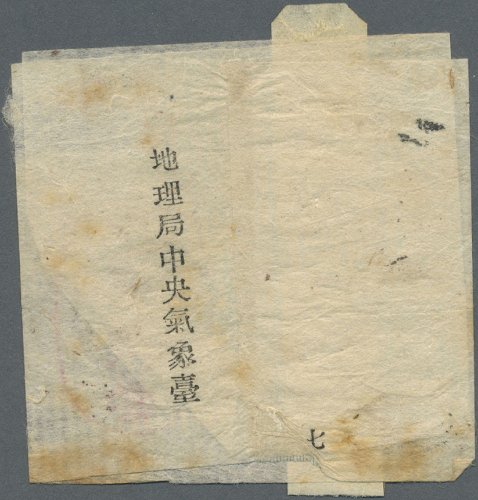 地理局中央氣象臺
七